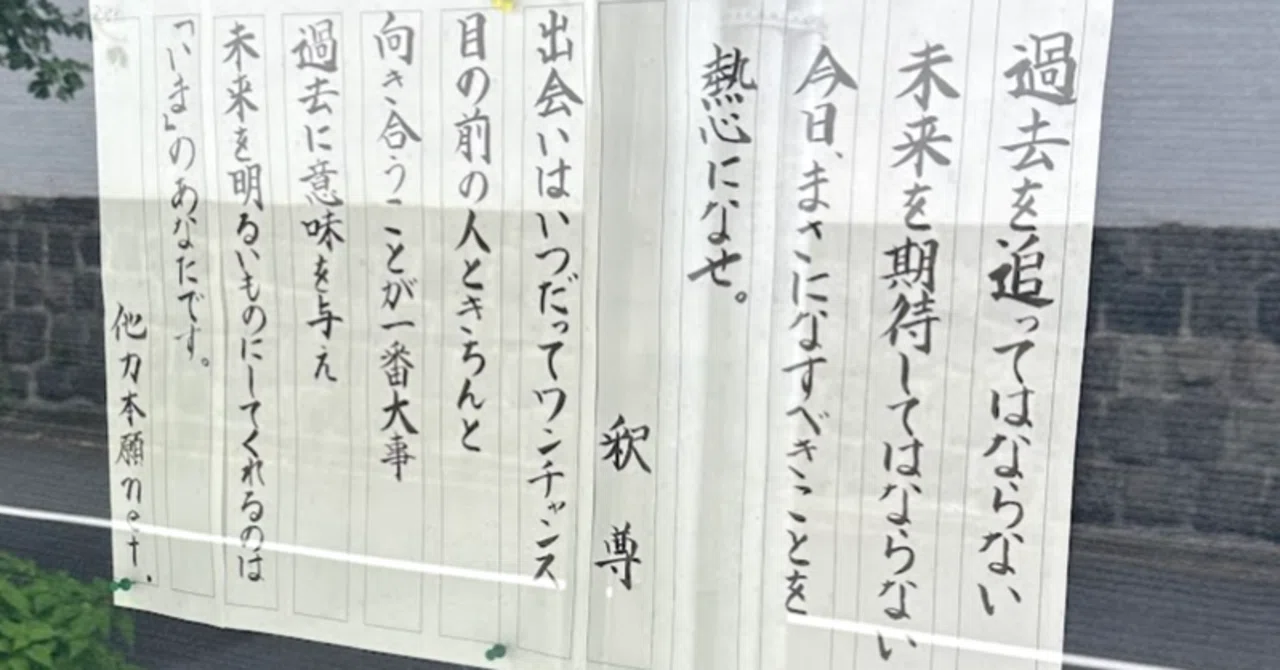 過去を追ってはならない
未来を期待してはならない
今日、まさになすべきことを
熱心になせ。
釈尊
出会いはいつだってワンチャンス
目の前の人ときちんと
向き合うことが一番大事
過去に意味を与え
未来を明るいものにしてくれるのは
「いま」のあなたです。
他力本願net.